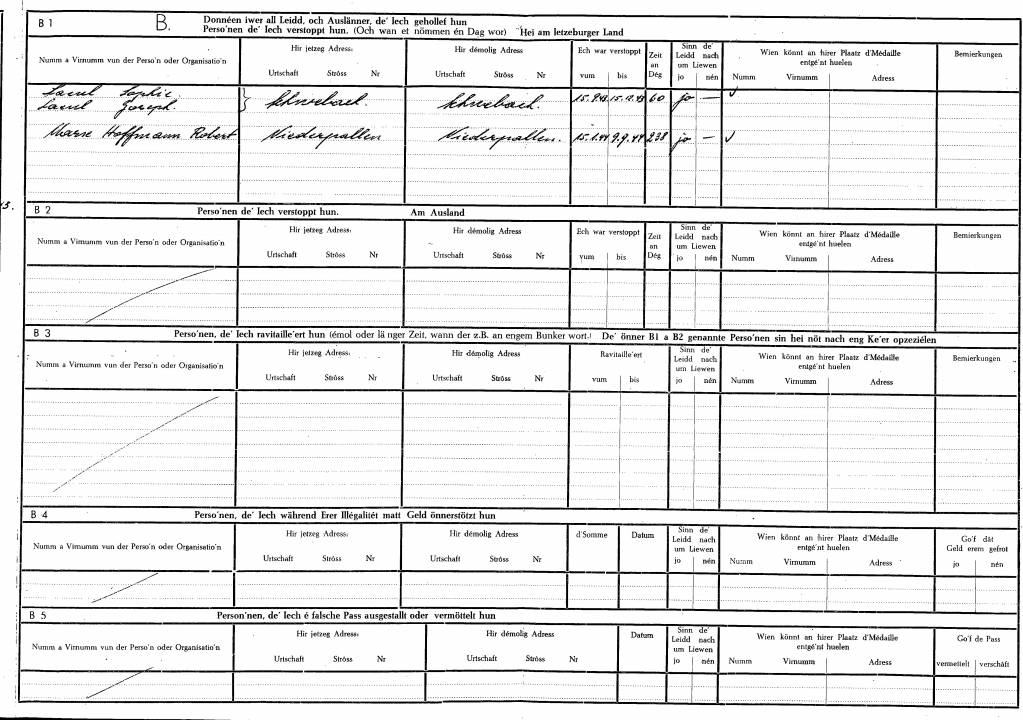 B 1 B. Donnéen iwer all Leidd, och Auslänner, de' Iech gehollef hun
Perso'nen de' Iech verstoppt hun. (Och wan et nömmen én Dag wor) Hei am letzeburger Land
Numm a Virnumm vun der Perso'n oder Organisatio'n Hir jetzeg Adress: Hir démolig Adress Ech war verstoppt Zeit an Dég Sinn de' Leidd nach um Liewen Wien könnt an hirer Plaatz d'Médaille entgé'nt huelen Bemierkungen
Urtschaft Ströss Nr Urtschaft Ströss Nr vum bis jo nén Numm Virnumm Adress
Sophie
Joseph. 60 jo —
Hoffmann Robert Niederpallen Niederpallen. 15.1.44 9.9.44 238 jo —
B 2 Perso'nen de' Iech verstoppt hun. Am Ausland
Numm a Virnumm vun der Perso'n oder Organisatio'n Hir jetzeg Adress: Hir démolig Adress Ech war verstoppt Zeit an Dég Sinn de' Leidd nach um Liewen Wien könnt an hirer Plaatz d'Médaille entgé'nt huelen Bemierkungen
Urtschaft Ströss Nr Urtschaft Ströss Nr vum bis jo nén Numm Virnumm Adress
B 3 Perso'nen, de' Iech ravitaille'ert hun (émol oder länger Zeit, wann der z.B. an engem Bunker wort.) De' önner B1 a B2 genannte Perso'nen sin hei nöt nach eng Ke'er opzeziélen
Numm a Virnumm vun der Perso'n oder Organisatio'n Hir jetzeg Adress: Hir démolig Adress Ravitaille'ert Sinn de' Leidd nach um Liewen Wien könnt an hirer Plaatz d'Médaille entgé'nt huelen Bemierkungen
Urtschaft Ströss Nr Urtschaft Ströss Nr vum bis jo nén Numm Virnumm Adress
B 4 Perso'nen, de' Iech während Erer Illégalitét matt Geld önnerstötzt hun
Numm a Virnumm vun der Perso'n oder Organisatio'n Hir jetzeg Adress: Hir démolig Adress d'Somme Datum Sinn de' Leidd nach um Liewen Wien könnt an hirer Plaatz d'Médaille entgé'nt huelen Go'f dât Geld erem gefrot
Urtschaft Ströss Nr Urtschaft Ströss Nr jo nén Numm Virnumm Adress jo nén
B 5 Person'nen, de' Iech é falsche Pass ausgestallt oder vermöttelt hun
Numm a Virnumm vun der Perso'n oder Organisatio'n Hir jetzeg Adress: Hir démolig Adress Datum Sinn de' Leidd nach um Liewen Wien könnt an hirer Plaatz d'Médaille entgé'nt huelen Go'f de Pass
Urtschaft Ströss Nr Urtschaft Ströss Nr jo nén Numm Virnumm Adress vermettelt verschâft